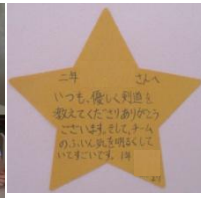 二年　　　さんへ
いつも、優しく剣道を
教えてくださりありがとう
ございます。そして、チーム
のふいん気を明るくして
いてすごいです。1年